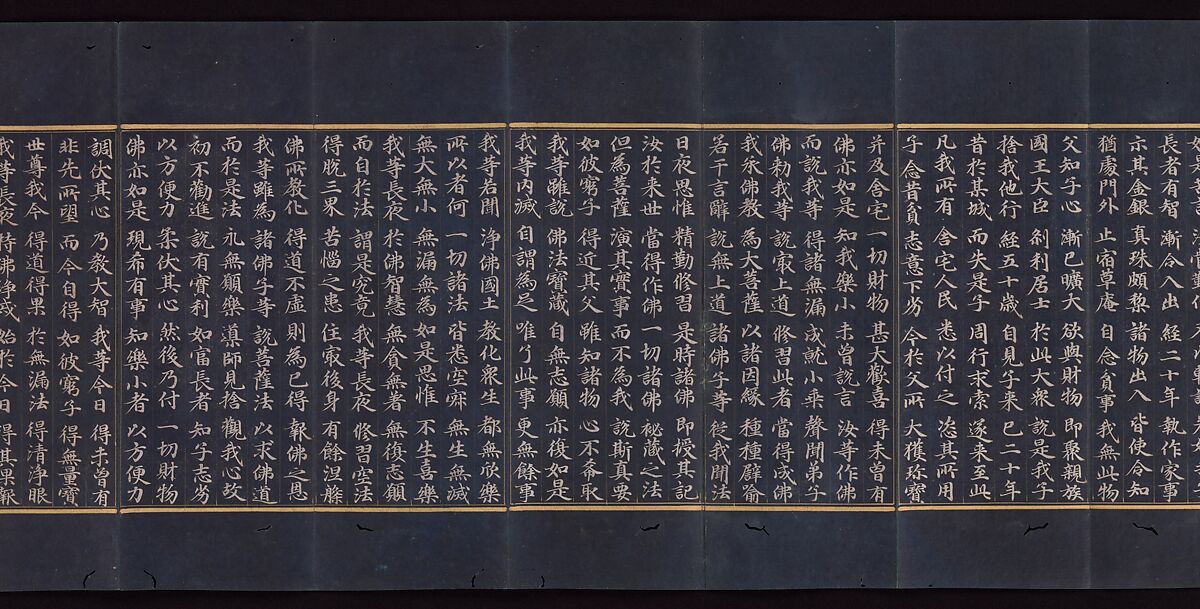 長者有智　漸令入出　經二十年　執作家事
示其金銀　真珠頗棃　諸物出入　皆使令知
猶處門外　止宿草庵　自念貧事　我無此物
父知子心　漸已曠大　欲與財物　即聚親族
國王大臣　剎利居士　於此大衆　說是我子
捨我他行　經五十歲　自見子來　已二十年
昔於某城　而失是子　周行求索　遂來至此
凡我所有　舍宅人民　悉以付之　恣其所用
子念昔貧　志意下劣　今於父所　大獲珎寶
并及舍宅　一切財物　甚大歡喜　得未曾有
佛亦如是　知我樂小　未曾說言　汝等作佛
而說我等　得諸無漏　成就小乘　聲聞弟子
佛勑我等　說冣上道　修習此者　當得成佛
我承佛教　為大菩薩　以諸因緣　種種譬喻
若干言辭　說無上道　諸佛子等　從我聞法
日夜思惟　精勤修習　是時諸佛　即授其記
汝於来世　當得作佛　一切諸佛　秘藏之法
但為菩薩　演其實事　而不為我　說斯真要
如彼窮子　得近其父　雖知諸物　心不希取
我等雖說　佛法寶藏　自無志願　亦復如是
我等內滅　自謂為足　唯了此事　更無餘事
我等若聞　淨佛國土　教化衆生　都無欣樂
所以者何　一切諸法　皆悉空寂　無生無滅
無大無小　無漏無為　如是思惟　不生喜樂
我等長夜　於佛智慧　無貪無著　無復志願
而自於法　謂是究竟　我等長夜　修習空法
得脫三界　苦惱之患　住冣後身　有餘涅槃
佛所教化　得道不虛　則為已得　報佛之恩
我等雖為　諸佛子等　說菩薩法　以求佛道
而於是法　永無願樂　導師見捨　觀我心故
初不勸進　說有實利　如富長者　知子志劣
以方便力　柔伏其心　然後乃付　一切財物
佛亦如是　現希有事　知樂小者　以方便力
調伏其心　乃教大智　我等今日　得未曾有
非先所望　而今自得　如彼窮子　得無量寶
世尊我今　得道得果　於無漏法　得清淨眼
我等長夜　持佛淨戒　始於今日　得其果報